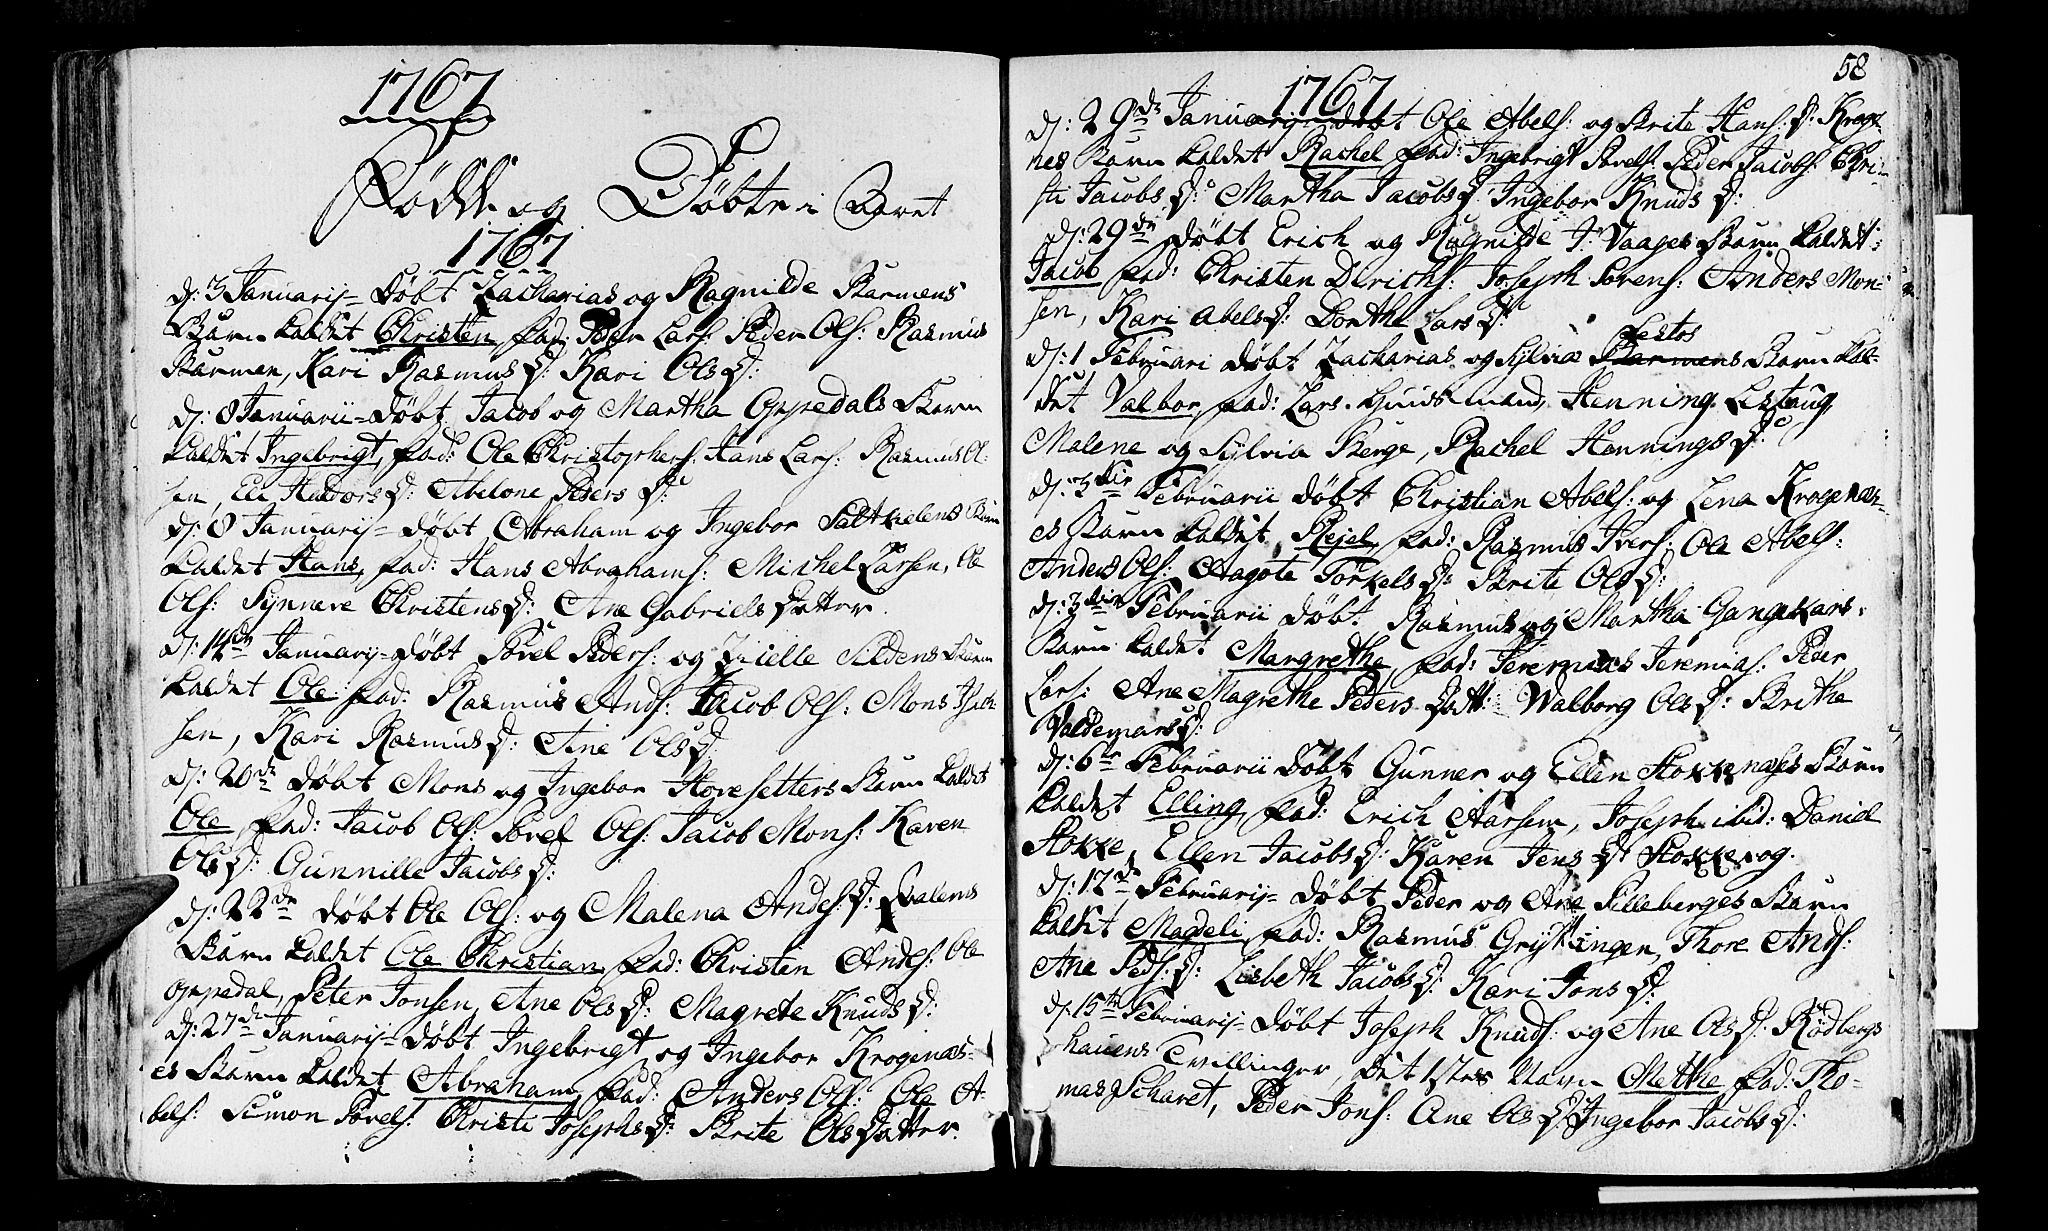 1767
Fødde og Døbte i Aaret
1767
D: 3 Januarij= Døbt Zacharias og Ragnilde Barmens
Barn kaldet Christen, fad: Peder Lars: Peder Ols: Rasmus
Barmen, Kari Rasmus D: Kari Ols D:
D: 8 Januarii= Døbt Jacob og Martha Oppedals Barn
kaldet Ingebrigt, fad: Ole Christophers: Hans Lars: Rasmus Ol:
sen, Eli Haldors D: Abelone Peders D:
D: 8 Januarij= Døbt Abraham og Ingebor Saltkelens Barn
kaldet Hans, fad: Hans Abrahams: Michel Larsen, Ole
Ols: Synneve Christens D: Ane Gabriels Datter.
D: 14de Januarij= Døbt Povel Peders: og Zielle Sildens Barn
kaldet Ole fad: Rasmus Ands: Jacob Ols: Mons
sen, Kari Rasmus D: Ane Ols D:
D: 20de Døbt Mons og Ingebor Hovesetters Barn kaldet
Ole, fad: Jacob Ols: Povel Ols: Jacob Mons: Karen
Ols D: Gunnille Jacobs D:
D: 22de Døbt Ole Ols: og Malena Andes: D: Qvalens
Barn kaldet Ole Christian, fad: Christen Andes: Ole
Oppedal, Peter Jonsen, Ane Ols D: Magrete Knuds D:
D: 27de Januarij= Døbt Ingebrigt og Ingebor Krogenæs=
es Barn kaldet Abraham, fad: Anders Ols: Ole A=
bels: Simon Povels: Christi Josephs D: Brite Ols Datter.
58
1767
D: 29de Januarij= Døbt Ole Abels: og Brite Hans: D: Kroge
nes Barn kaldet Rachel fad: Ingebrigt Povels: Peder Jacobs: Chri=
sti Jacobs D: Martha Jacobs D: Ingebor Knuds D:
D: 29de Døbt Erich og Ragnilde I: Vaages Barn kaldet
Jacob fad: Christen Dirichs: Joseph Sørens: Anders Mon=
sen, Kari Abels D: Dorthe Lars D:
Festos
D: 1 Februari Døbt Zacharias og Sylvia Barmens Barn kal=
det Valbor, fad: Lars Huusmand, Henning Lestoug,
Malene og Sylvia Berge, Rachel Hennings D:
D: 3die Februarii Døbt Christian Abels: og Lena Krogenæs=
es Barn kaldet Rejel, fad: Rasmus Ivers: Ole Abels:
Anders Ols: Aagote Torkels D: Brite Ols D:
D: 3die Februarii Døbt Rasmus og Martha Gangekars.
Barn kaldet Margrethe, fad: Jeremias Jeremias: Peder
Lars: Ane Magrethe Peders Datt: Walborg Ols D: Brithe
Valdemars D:
D: 6te Februarii Døbt Gunner og Ellen Stokkenæses Barn
kaldet Elling, fad: Erich Aarsem, Joseph ibid: Daniel
Stokke, Ellen Jacobs D: Karen Jens D: Stokke og.
D: 12te Februarij= Døbt Peder og Ane Silleberges Barn
kaldet Magdeli, fad: Rasmus Grytingen, Thore Ands:
Ane Peds: D: Lisbeth Jacobs D: Kari Jons D:
D: 15te Februarij= Døbt Joseph Knuds: og Ane Ols D: Rødbergs
hauens Tvillinger, det 1stes Navn Mette, fad: Tho=
mas Scharet, Peder Jons: Ane Ols D: Ingebor Jacobs D: